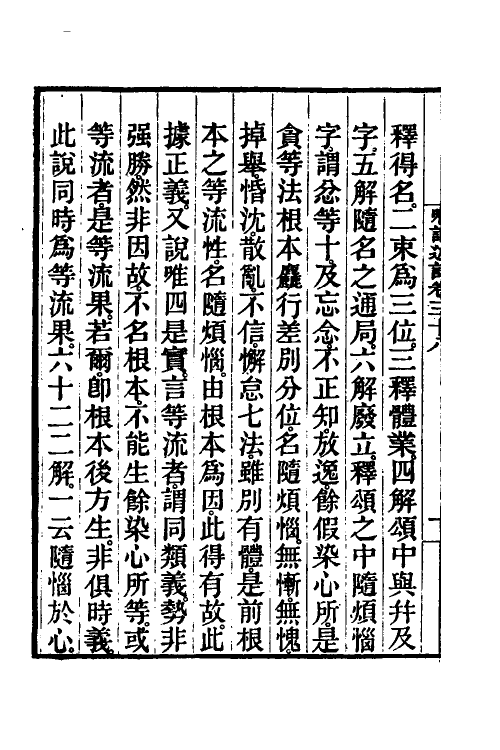 釋得名。二束為三位。三釋體業。四解頌中與幷及
字。五解隨名之通局。六解廢立。釋頌之中隨煩惱
字。謂忿等十。及忘念。不正知。放逸。餘假染心所。是
貪等法根本麤行差別分位。名隨煩惱。無慚。無愧。
掉舉。惛沈散亂。不信。懈怠七法。雖別有體。是前根
本之等流性。名隨煩惱。由根本為因。此得有故。此
據正義。又說唯四是實。言等流者。謂同類義。勢非
强勝。然非因故。不名根本。不能生餘染心所等。或
等流者。是等流果。若爾。卽根本後方生。非俱時義。
此說同時為等流果。六十二二解。一云隨惱於心。
卷三十八